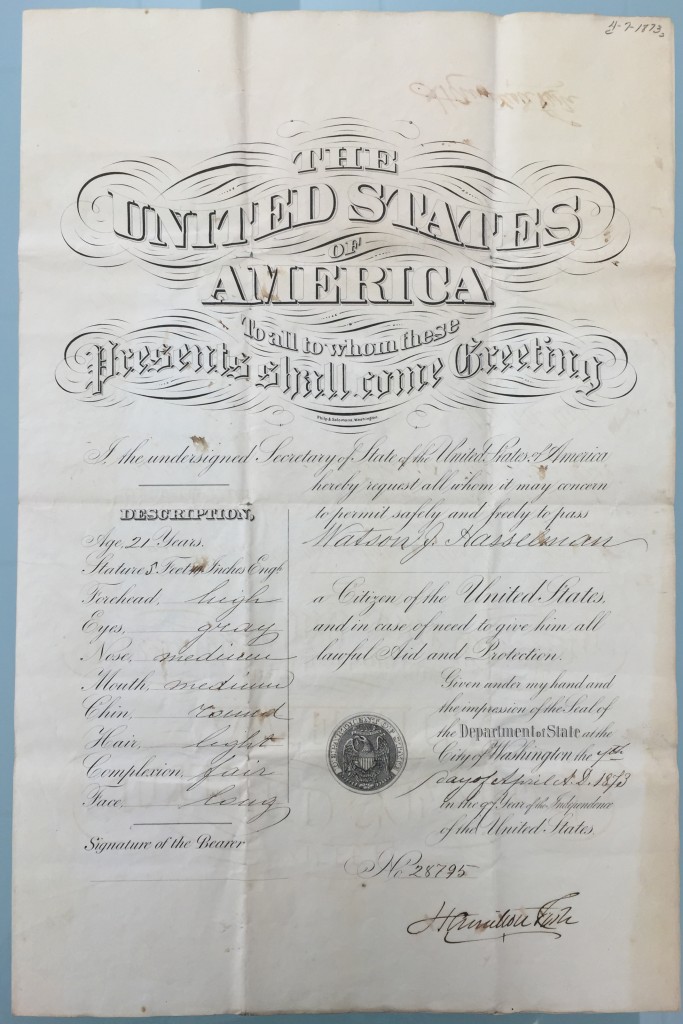 4-7-1873
THE
UNITED STATES
OF
AMERICA
To all to whom these
Presents shall come Greeting
Philp & Solomons, Washington
I, the undersigned Secretary of State of the United States of America
hereby request all whom it may concern
to permit safely and freely to pass
Watson J. Hasselman
a Citizen of the United States,
and in case of need to give him all
lawful Aid and Protection.
Given under my hand and
the impression of the Seal of
the Department of State at the
City of Washington the 7th
day of April A.D. 1873
in the 97 Year of the Independence
of the United States.
No 28795
Hamilton Fish
DESCRIPTION,
Age, 21 Years.
Stature 5 Feet Inches Engh
Forehead, high
Eyes, gray
Nose, medium
Mouth, medium
Chin, round
Hair, light
Complexion, fair
Face, long
Signature of the Bearer